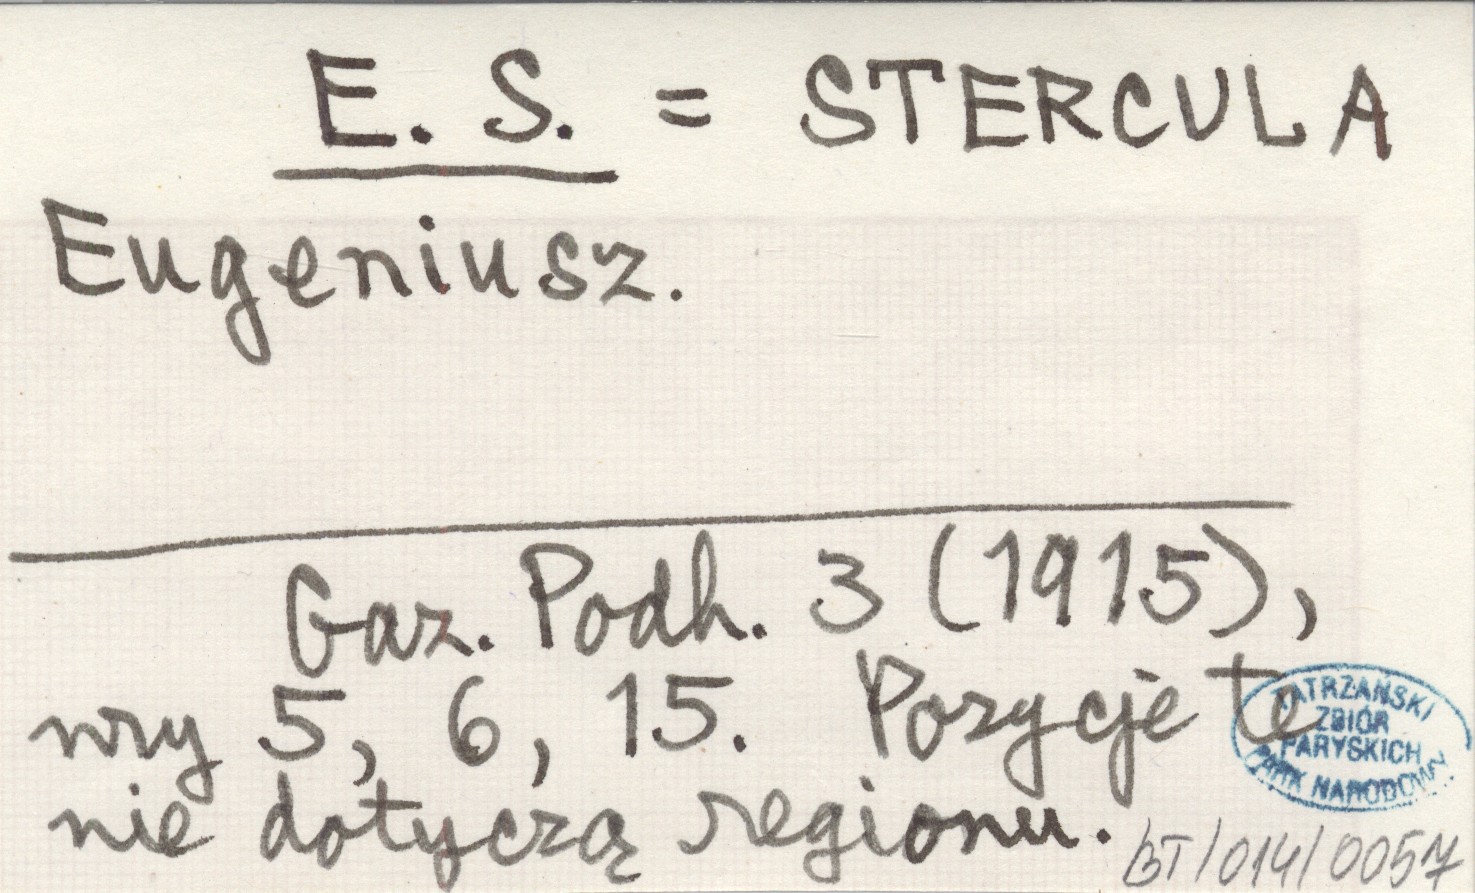 E. S. = STERCULA
Eugeniusz.
Gaz. Podh. 3 (1915),
nry 5, 6, 15. Pozycje te
nie dotyczą regionu.
TATRZAŃSKI
ZBIÓR
PARYSKICH
PARK NARODOWY
BT/014/0057